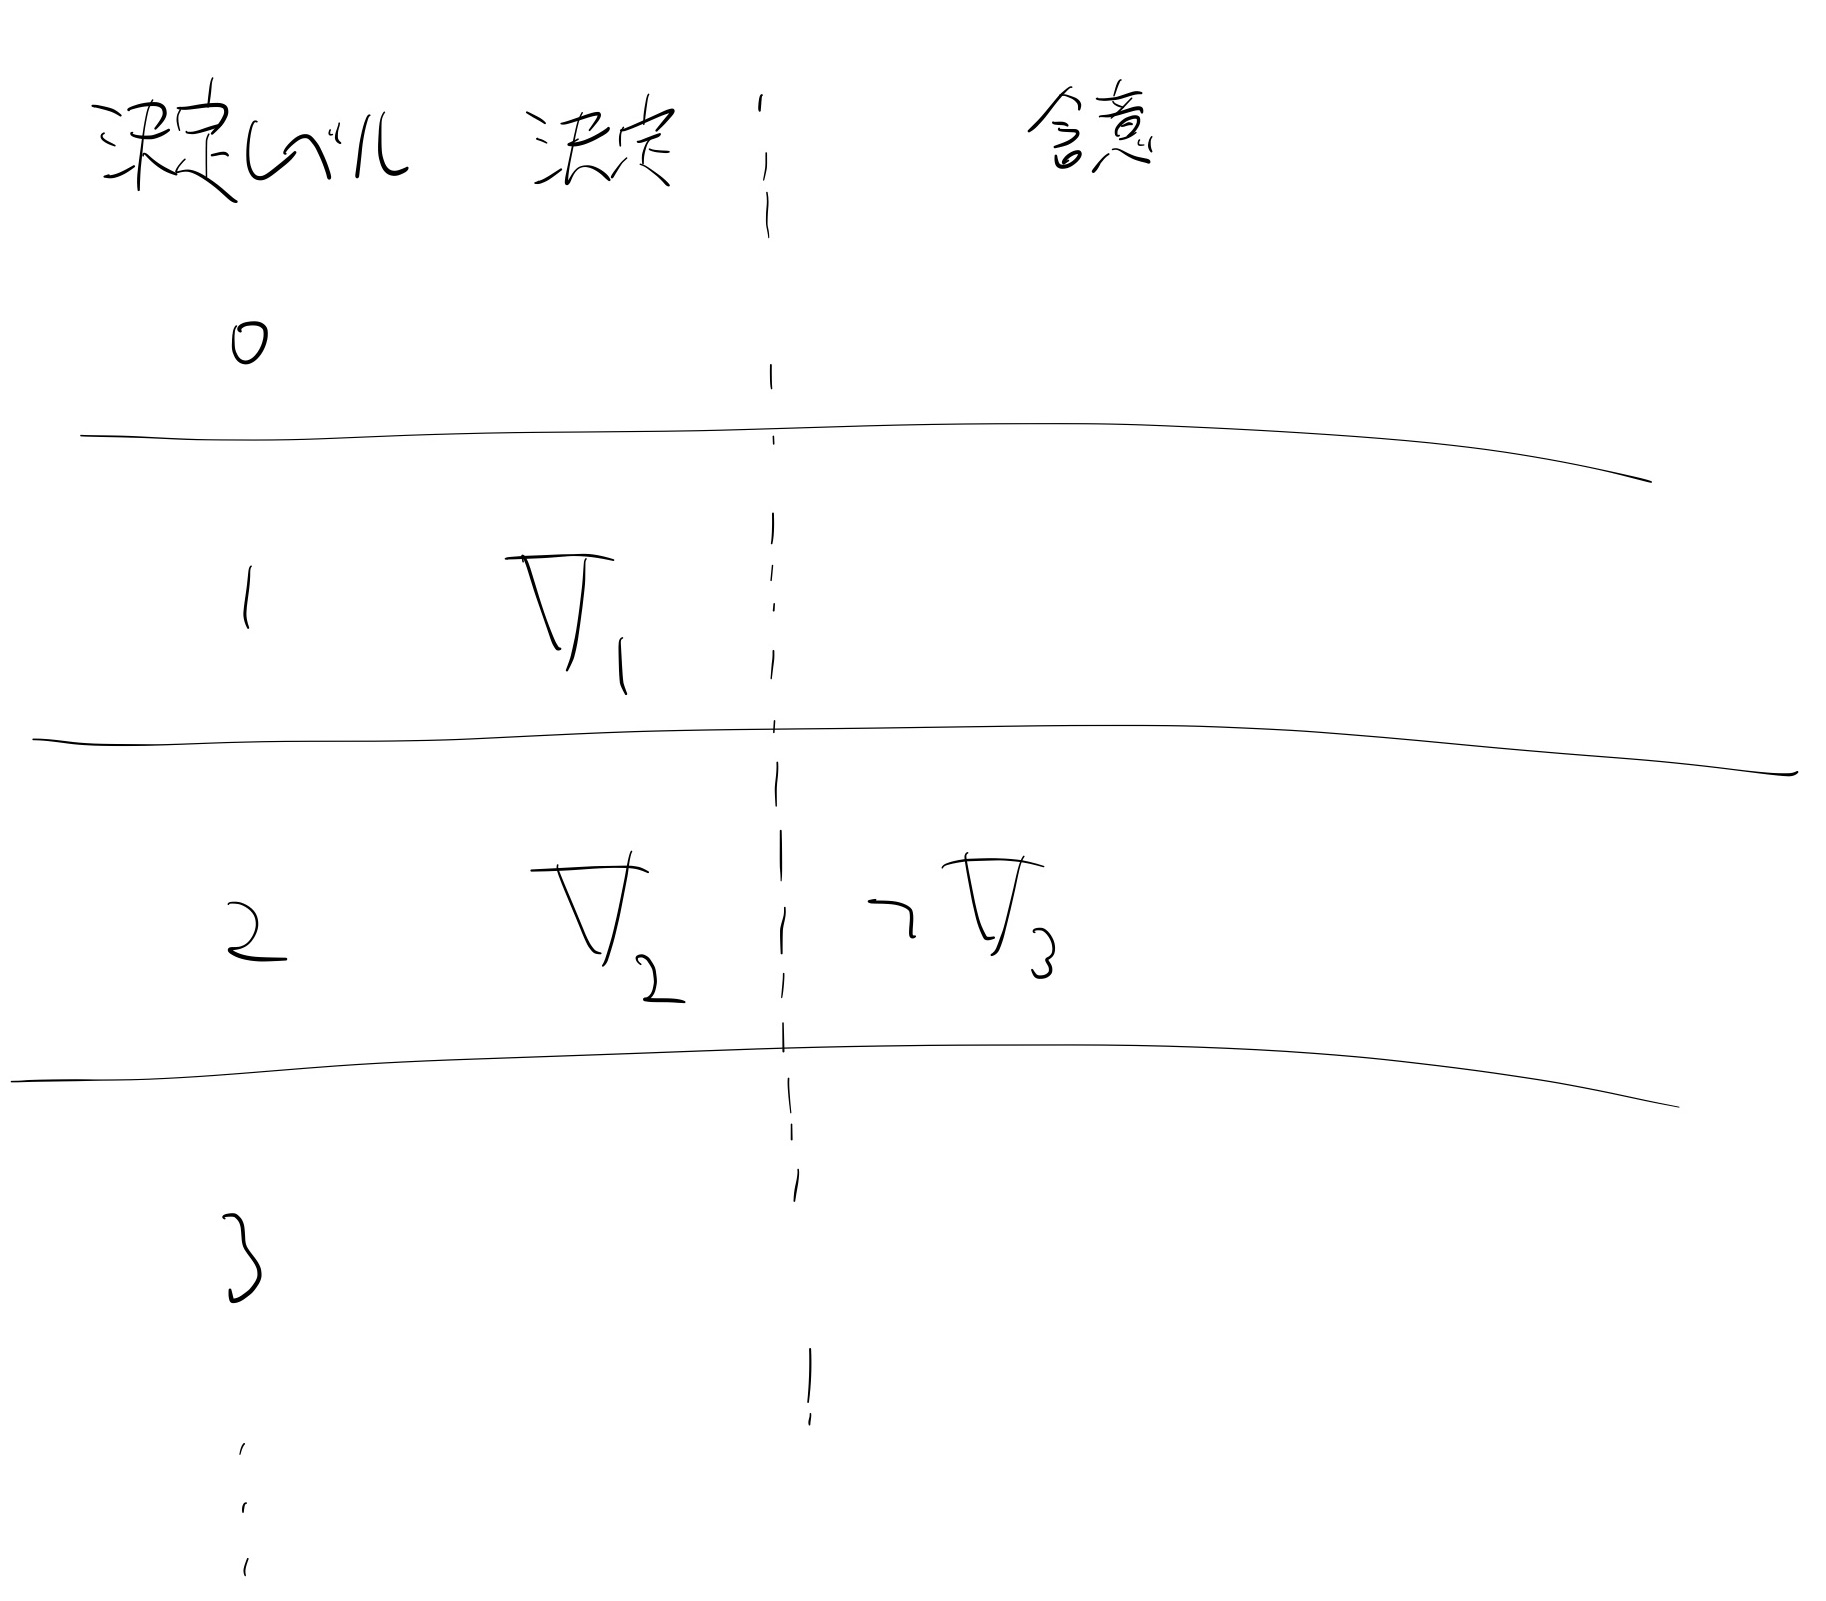 決定レベル 決定 含意
0
1 V1
2 V2 ¬V3
3